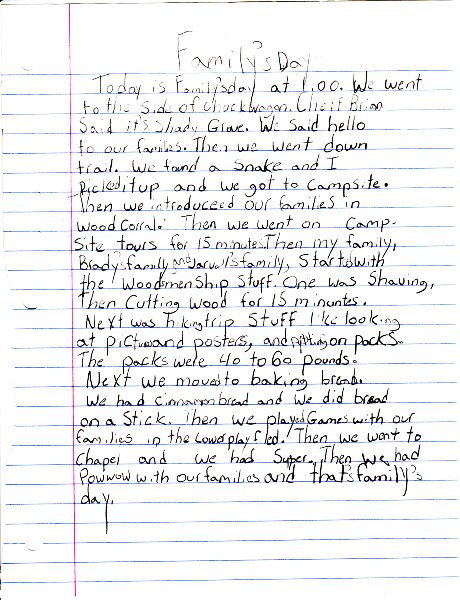 Family's Day
Today is Family'sday at 1:00. We went
to the Side of Chuckwagon. Cheif Brian
Said it's Shady Grove. We Said hello
to our families. Then we went down
trail. We found a Snake and I
Picked it up and we got to Campsite.
Then we introduceed our families in
Wood Corral. Then we went on Camp-
Site tours for 15 minutes. Then my family,
Brady's family and Jarvell's family, Started with
the Woodsmenship Stuff. One was Shaving,
Then Cutting Wood for 15 minuntes.
Next was hiking trip Stuff like looking
at picturand posters, and putting on packs.
The packs were 40 to 60 pounds.
Next we moved to baking bread.
We had cinnamon bread and we did bread
on a Stick. Then we played Games with our
families in the Lowd play fled. Then we want to
Chapel and we had Super. Then we had
Powwow with our families and that's family's
day.